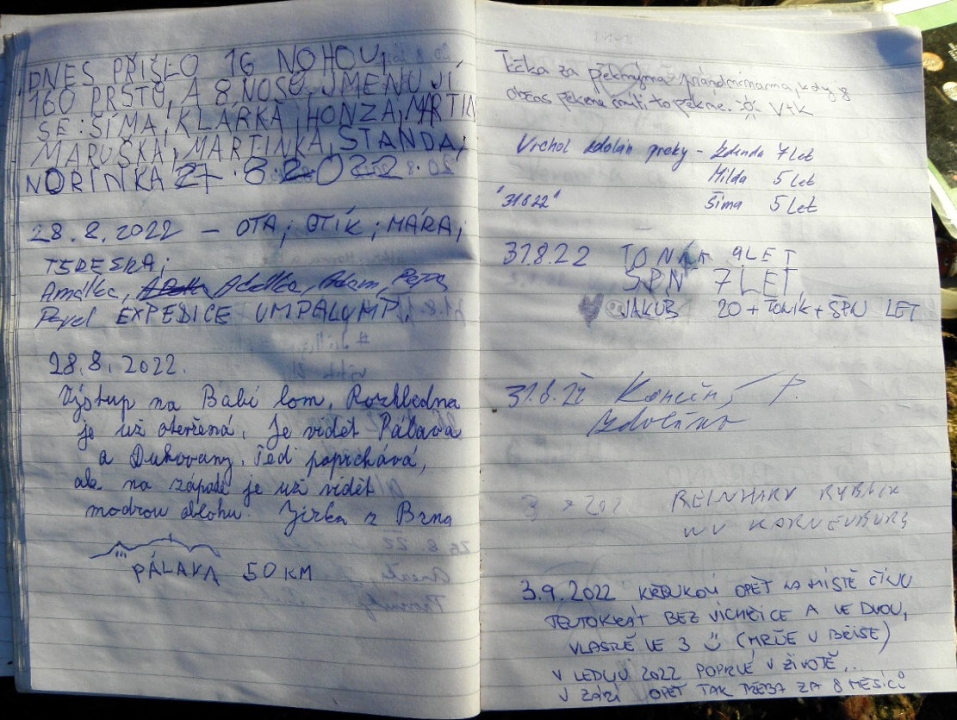 DNES PŘIŠLO 16 NOHOU,
160 PRSTŮ, A 8 NOSŮ, JMENUJÍ
SE: SIMA, KLÁRKA, HONZA, MARTIN
MARUŠKA, MARTINKA, STANDA,
NORINKA 27.8.2022
28.8.2022 – OTA; OTÍK; MÁRA;
TEREZKA;
Amálka, Adélka, Adam, Pepa
Pavel EXPEDICE UMPALUMP,
28.8.2022.
Výstup na Babí lom, Rozhledna
je už otevřená. Je vidět Pálava
a Dukovany. Teď poprchává,
ale na západě je už vidět
modrou oblohu. Jirka z Brna
PÁLAVA 50 KM
Tečka za
občas pěkné to pěkné. V+K
Vrchol zdolán - 7 let
Milda 5 let
"31822" Sima 5 let
31.8.22 TONÍK 9 LET
ŠPN 7 LET,
JAKUB 20 + TONÍK + ŠPN LET
31.8.22 P.
3 9 202 REINHARD
KORNEUBURG
3.9.2022 OPĚT NA MÍSTĚ ČINU
TENTOKRÁT BEZ VICHŘICE A VE DVOU,
VLASTNĚ VE 3 (MRŇE V BŘIŠE)
V LEDNU 2022 POPRVÉ V ŽIVOTĚ..
V ZÁŘÍ OPĚT TAK TŘEBA ZA 8 MĚSÍCŮ